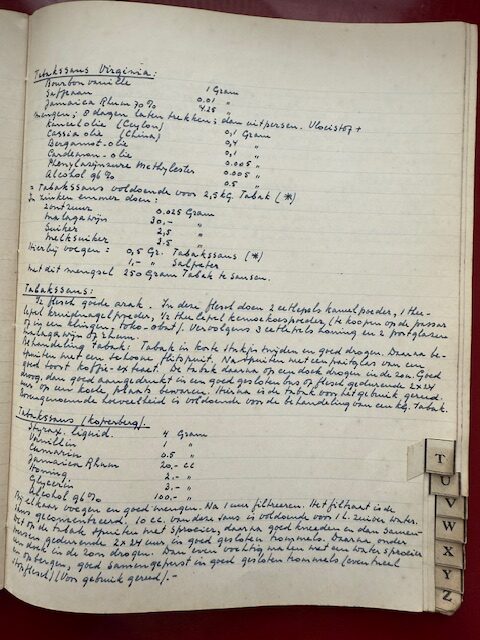 Tabakssaus Virginia:
Bourbon vanille 1 Gram
Saffraan 0.01 "
Jamaica Rhum 70% 4.25 "
mengen; 8 dagen laten trekken; dan uitpersen. Vloeistof +
Kaneelolie (Ceylon) 0,1 Gram
Cassia olie (China) 0,4 "
Bergamot-olie 0,1 "
Cardemom-olie 0.005 "
Phenylazijnzure Methylester 0.005 "
Alcohol 96% 0.5 "
= Tabakssaus voldoende voor 2,5 kg. Tabak (*)
In zinken emmer doen:
Zoutzuur 0.025 Gram
Malagawijn 30,- "
Suiker 2,5 "
Melksuiker 2.5 "
Hierbij voegen: 0,5 Gr. Tabakssaus (*)
1,- " Salpeter
Met dit mengsel 250 Gram Tabak te sausen.
Tabakssaus:
1/2 flesch goede arak. In deze flesch doen 2 eetlepels kaneelpoeder, 1 thee-
lepel kruidnagelpoeder, 1/2 thee lepel (te koopen op de passar
of in een toko-obat). Vervolgens 3 eetlepels honing en 2 portglazen
malagawijn of rhum.
Behandeling Tabak: Tabak in korte stukjes snijden en goed drogen. Daarna be-
spuiten met een behoorl. flitspuit. Na spuiten met een van een
goed soort koffie-extract. De tabak daarna op een doek drogen in de zon. Goed
droog, dan goed aangedrukt in een goed gesloten bus of flesch gedurende 2x24
uur op een koele plaats bewaren. Hierna is de tabak voor het gebruik gereed.
Bovengenoemde hoeveelheid is voldoende voor de behandeling van een kg. tabak.
Tabakssaus (Koperberg).
Styrax liquid. 4 Gram
Vanillin 1 "
Cumarin 0.5 "
Jamaica Rhum 20,- cc
Honing 2.- "
Glycerin 3.- "
Alcohol 96% 100,- "
Bij elkaar voegen en goed mengen. Na 1 uur filtreeren. Het filtraat is de
saus geconcentreerd. 10 cc. van deze saus is voldoende voor 1 l. zuiver water.
Dit op de tabak spuiten met sproeier, daarna goed kneeden en dan samen-
persen gedurende 2x24 uur in goed gesloten trommels. Daarna onder
een doek in de zon drogen. Dan even vochtig maken met een water sproeier
en opbergen, goed samengeperst in goed gesloten trommels (eventueel
stopflesch) (Voor gebruik gereed).-
T
U
V
W
X
Y
Z